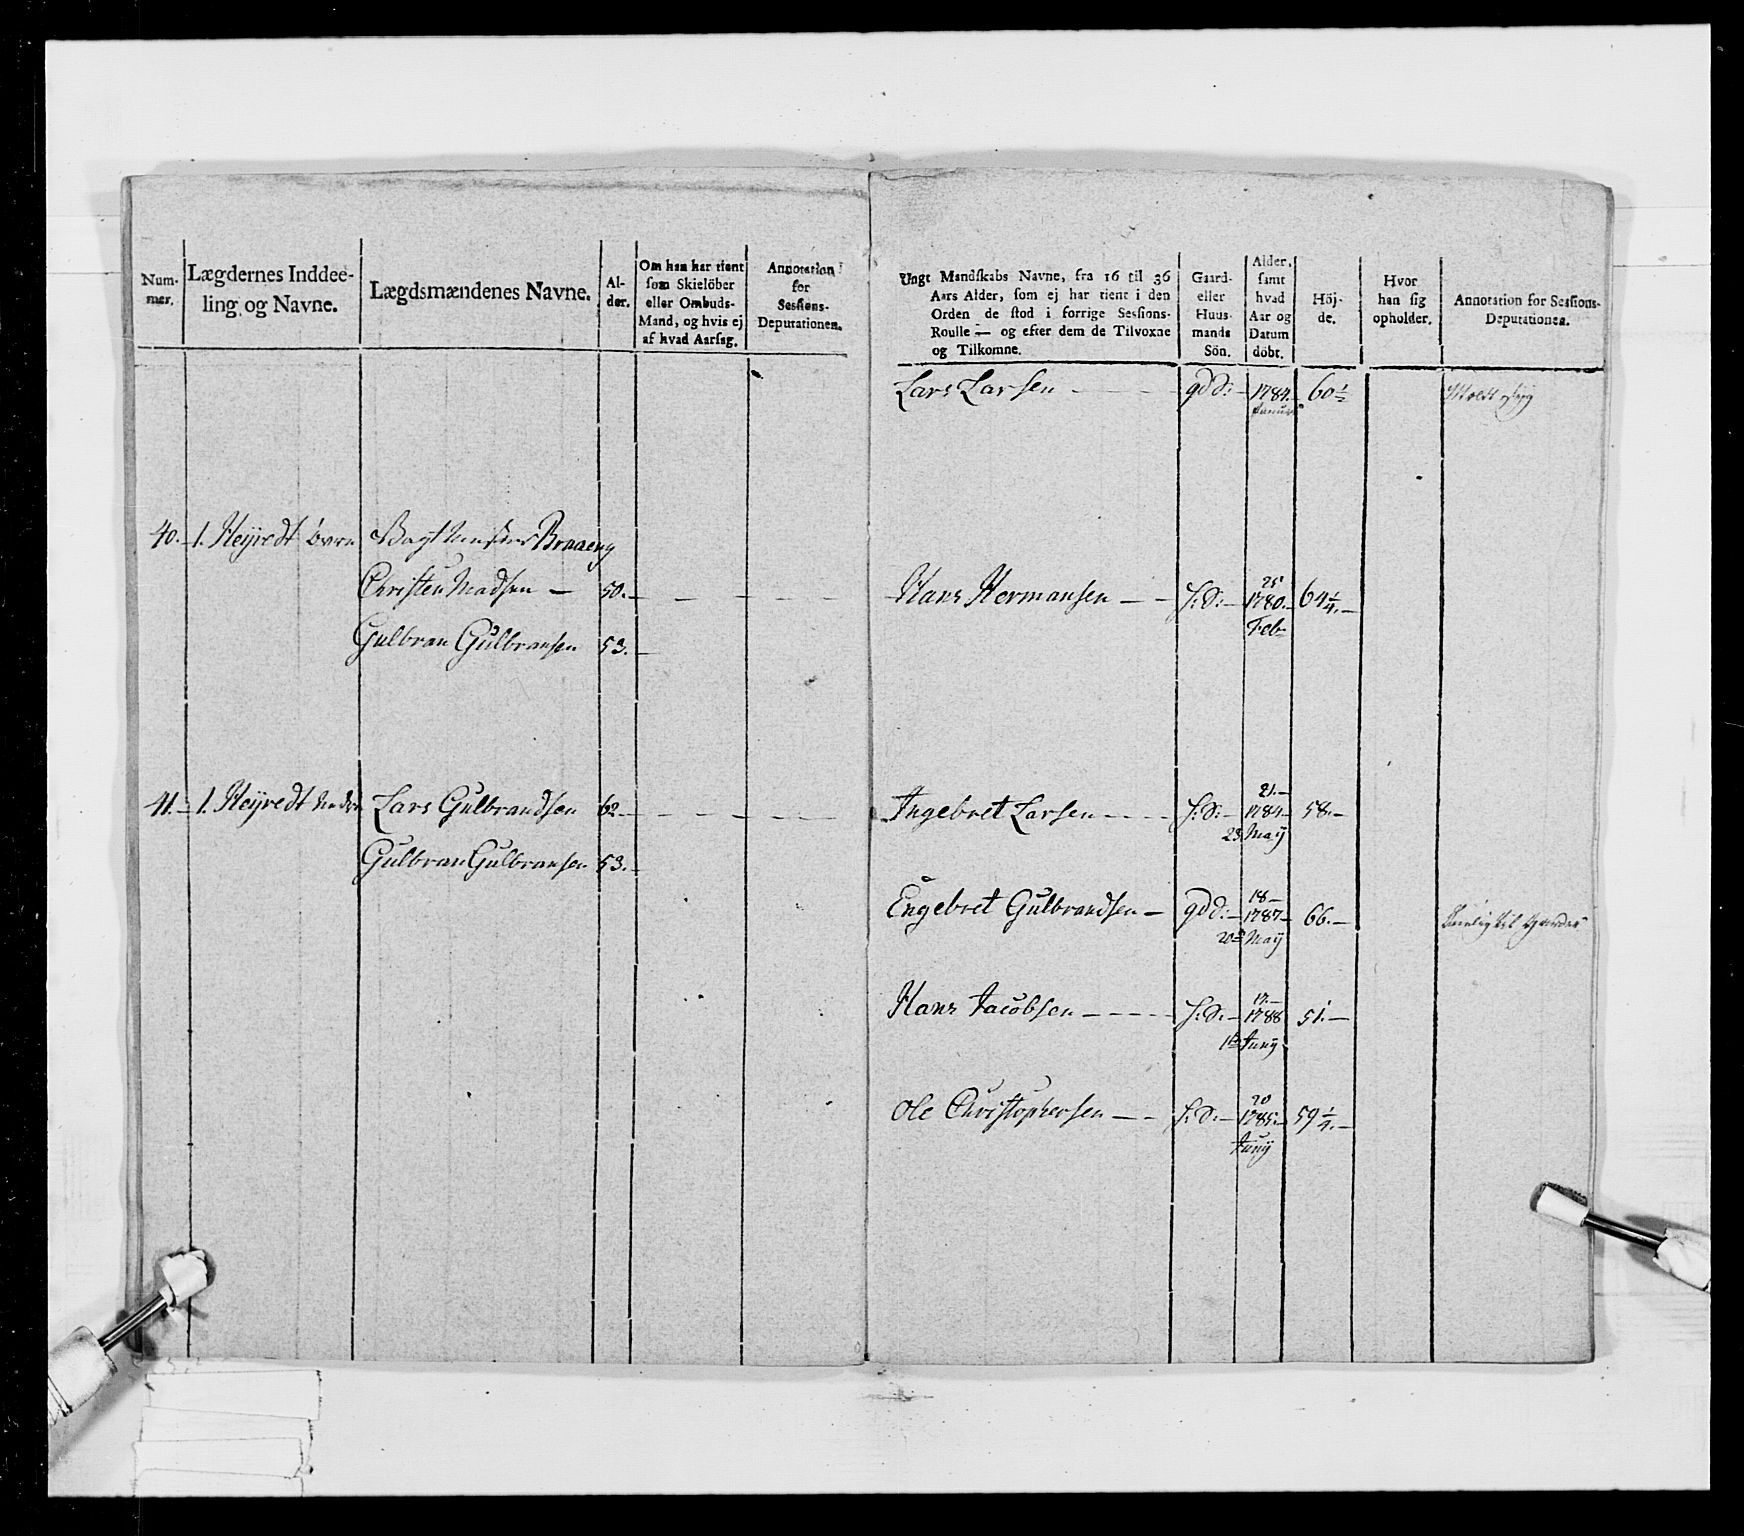 Num-
mer.
Lægdernes Inddee-
ling og Navne.
Lægdsmændenes Navne.
Al-
der.
Om han har tient
som Skielöber
eller Ombuds-
Mand, og hvis ej
af hvad Aarsag.
Annotation
for
Sessions-
Deputationen.
40. 1. Heyredt övre
Christen Madsen — 50. —
Gulbran Gulbransen 53. —
41. — 1. Heyredt Nedre Lars Gulbrandsen 62 —
Gulbran Gulbransen 53. —
Ungt Mandskabs Navne, fra 16 til 36
Aars Alder, som ej har tient i den
Orden de stod i forrige Sessions-
Roulle — og efter dem de Tilvoxne
og Tilkomne.
Gaard-
eller
Huus-
mands
Sön.
Alder,
samt
hvad
Aar og
Datum
döbt.
Höj-
de.
Hvor
han sig
opholder.
Annotation for Sessions-
Deputationen.
Lars Larsen — gdd: — 1784. — 60 1/2
25
Hans Hermansen — — h:d: — 1780. — 64 1/4. —
Feb
21. —
Ingebret Larsen — — h:d: — 1784 — 58. —
23 May
18 —
Engebret Gulbrandsen — gdd: — 1787 — 66. —
20de May
17. —
Hans Jacobsen — — — h:d: — 1788 51. —
1te Juny
20
Ole Christophersen — — h:d: — 1785. — 59 1/4. —
Juny